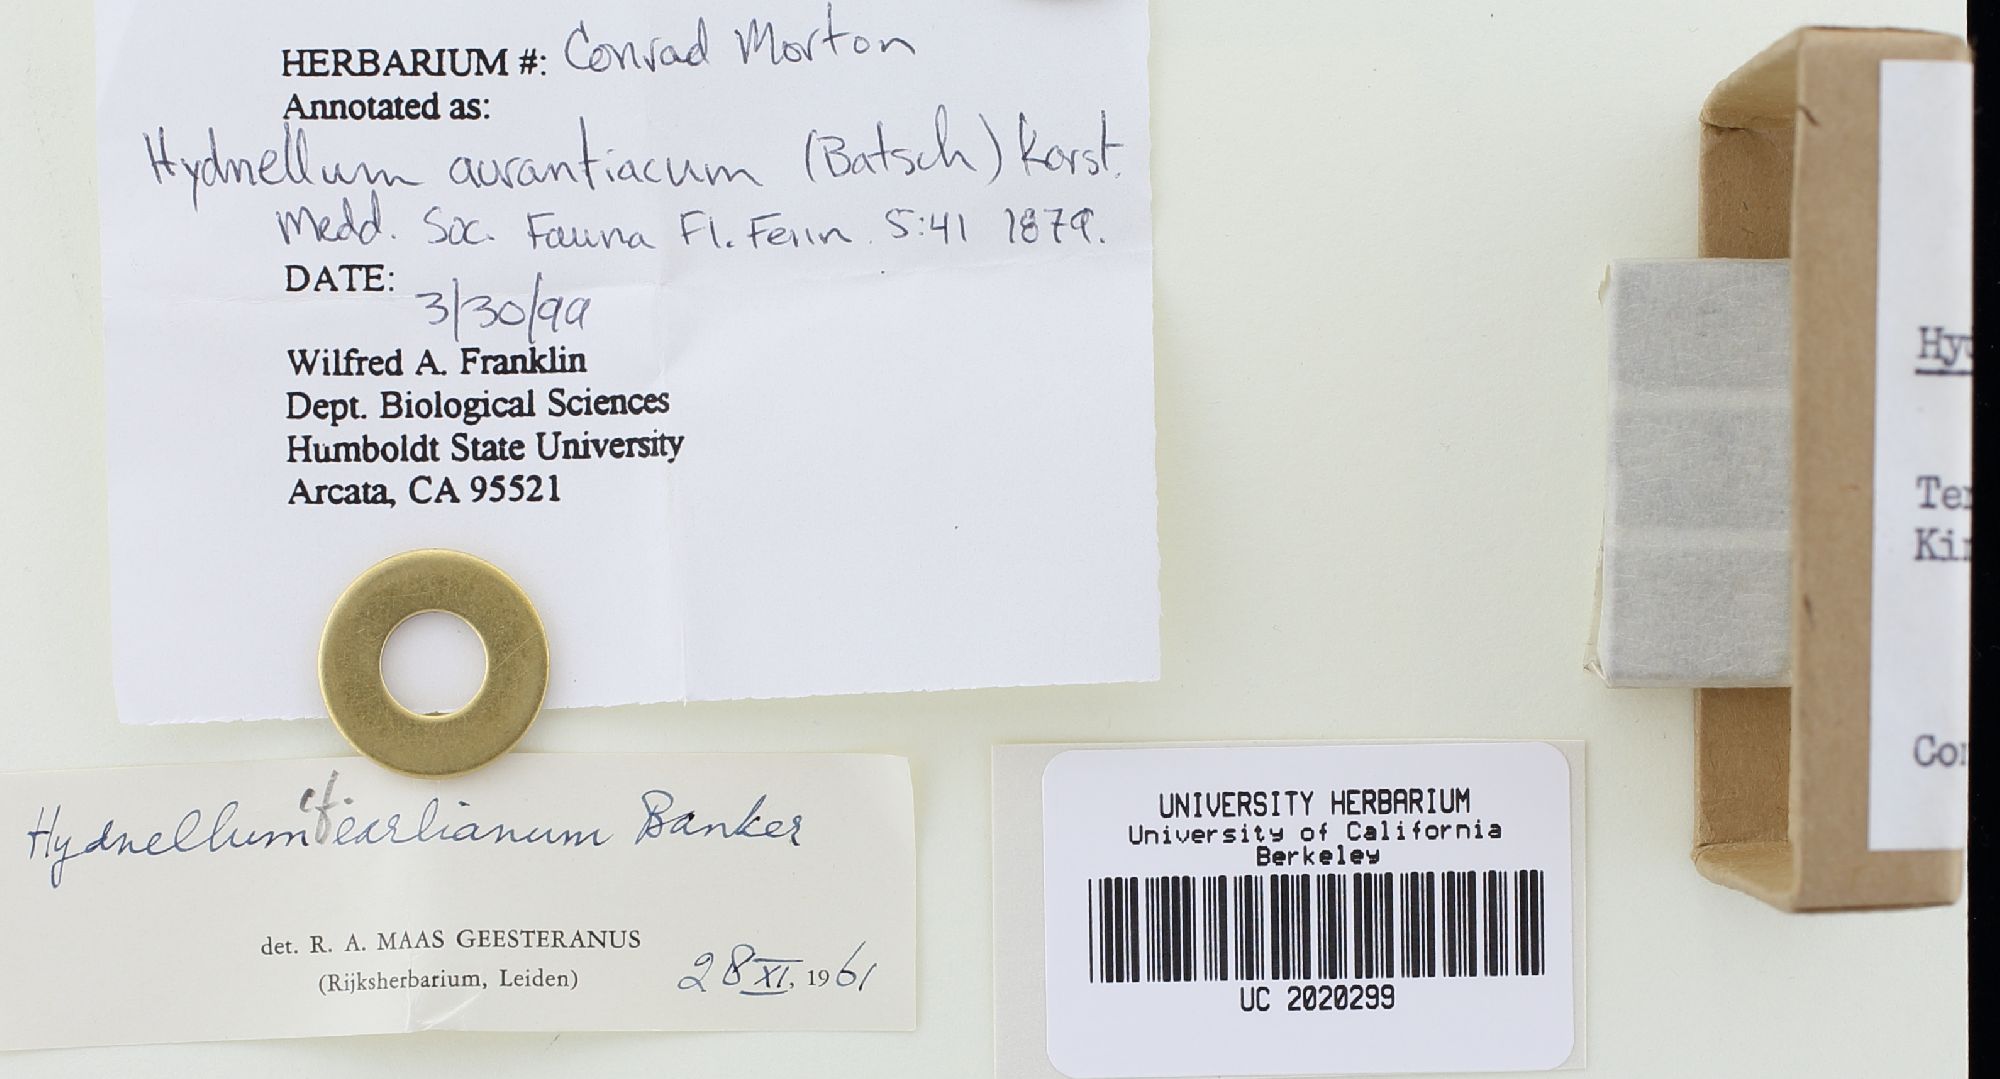 HERBARIUM #: Conrad Morton
Annotated as:
Hydnellum aurantiacum (Batsch) Karst.
Medd. Soc. Fauna Fl. Fenn. 5:41 1879.
DATE: 3/30/99
Wilfred A. Franklin
Dept. Biological Sciences
Humboldt State University
Arcata, CA 95521
Hydnellum cf. earlianum Banker
det. R. A. MAAS GEESTERANUS
(Rijksherbarium, Leiden)
28 XI, 1961
UNIVERSITY HERBARIUM
University of California
Berkeley
UC 2020299
Hy
Te
Ki
Co